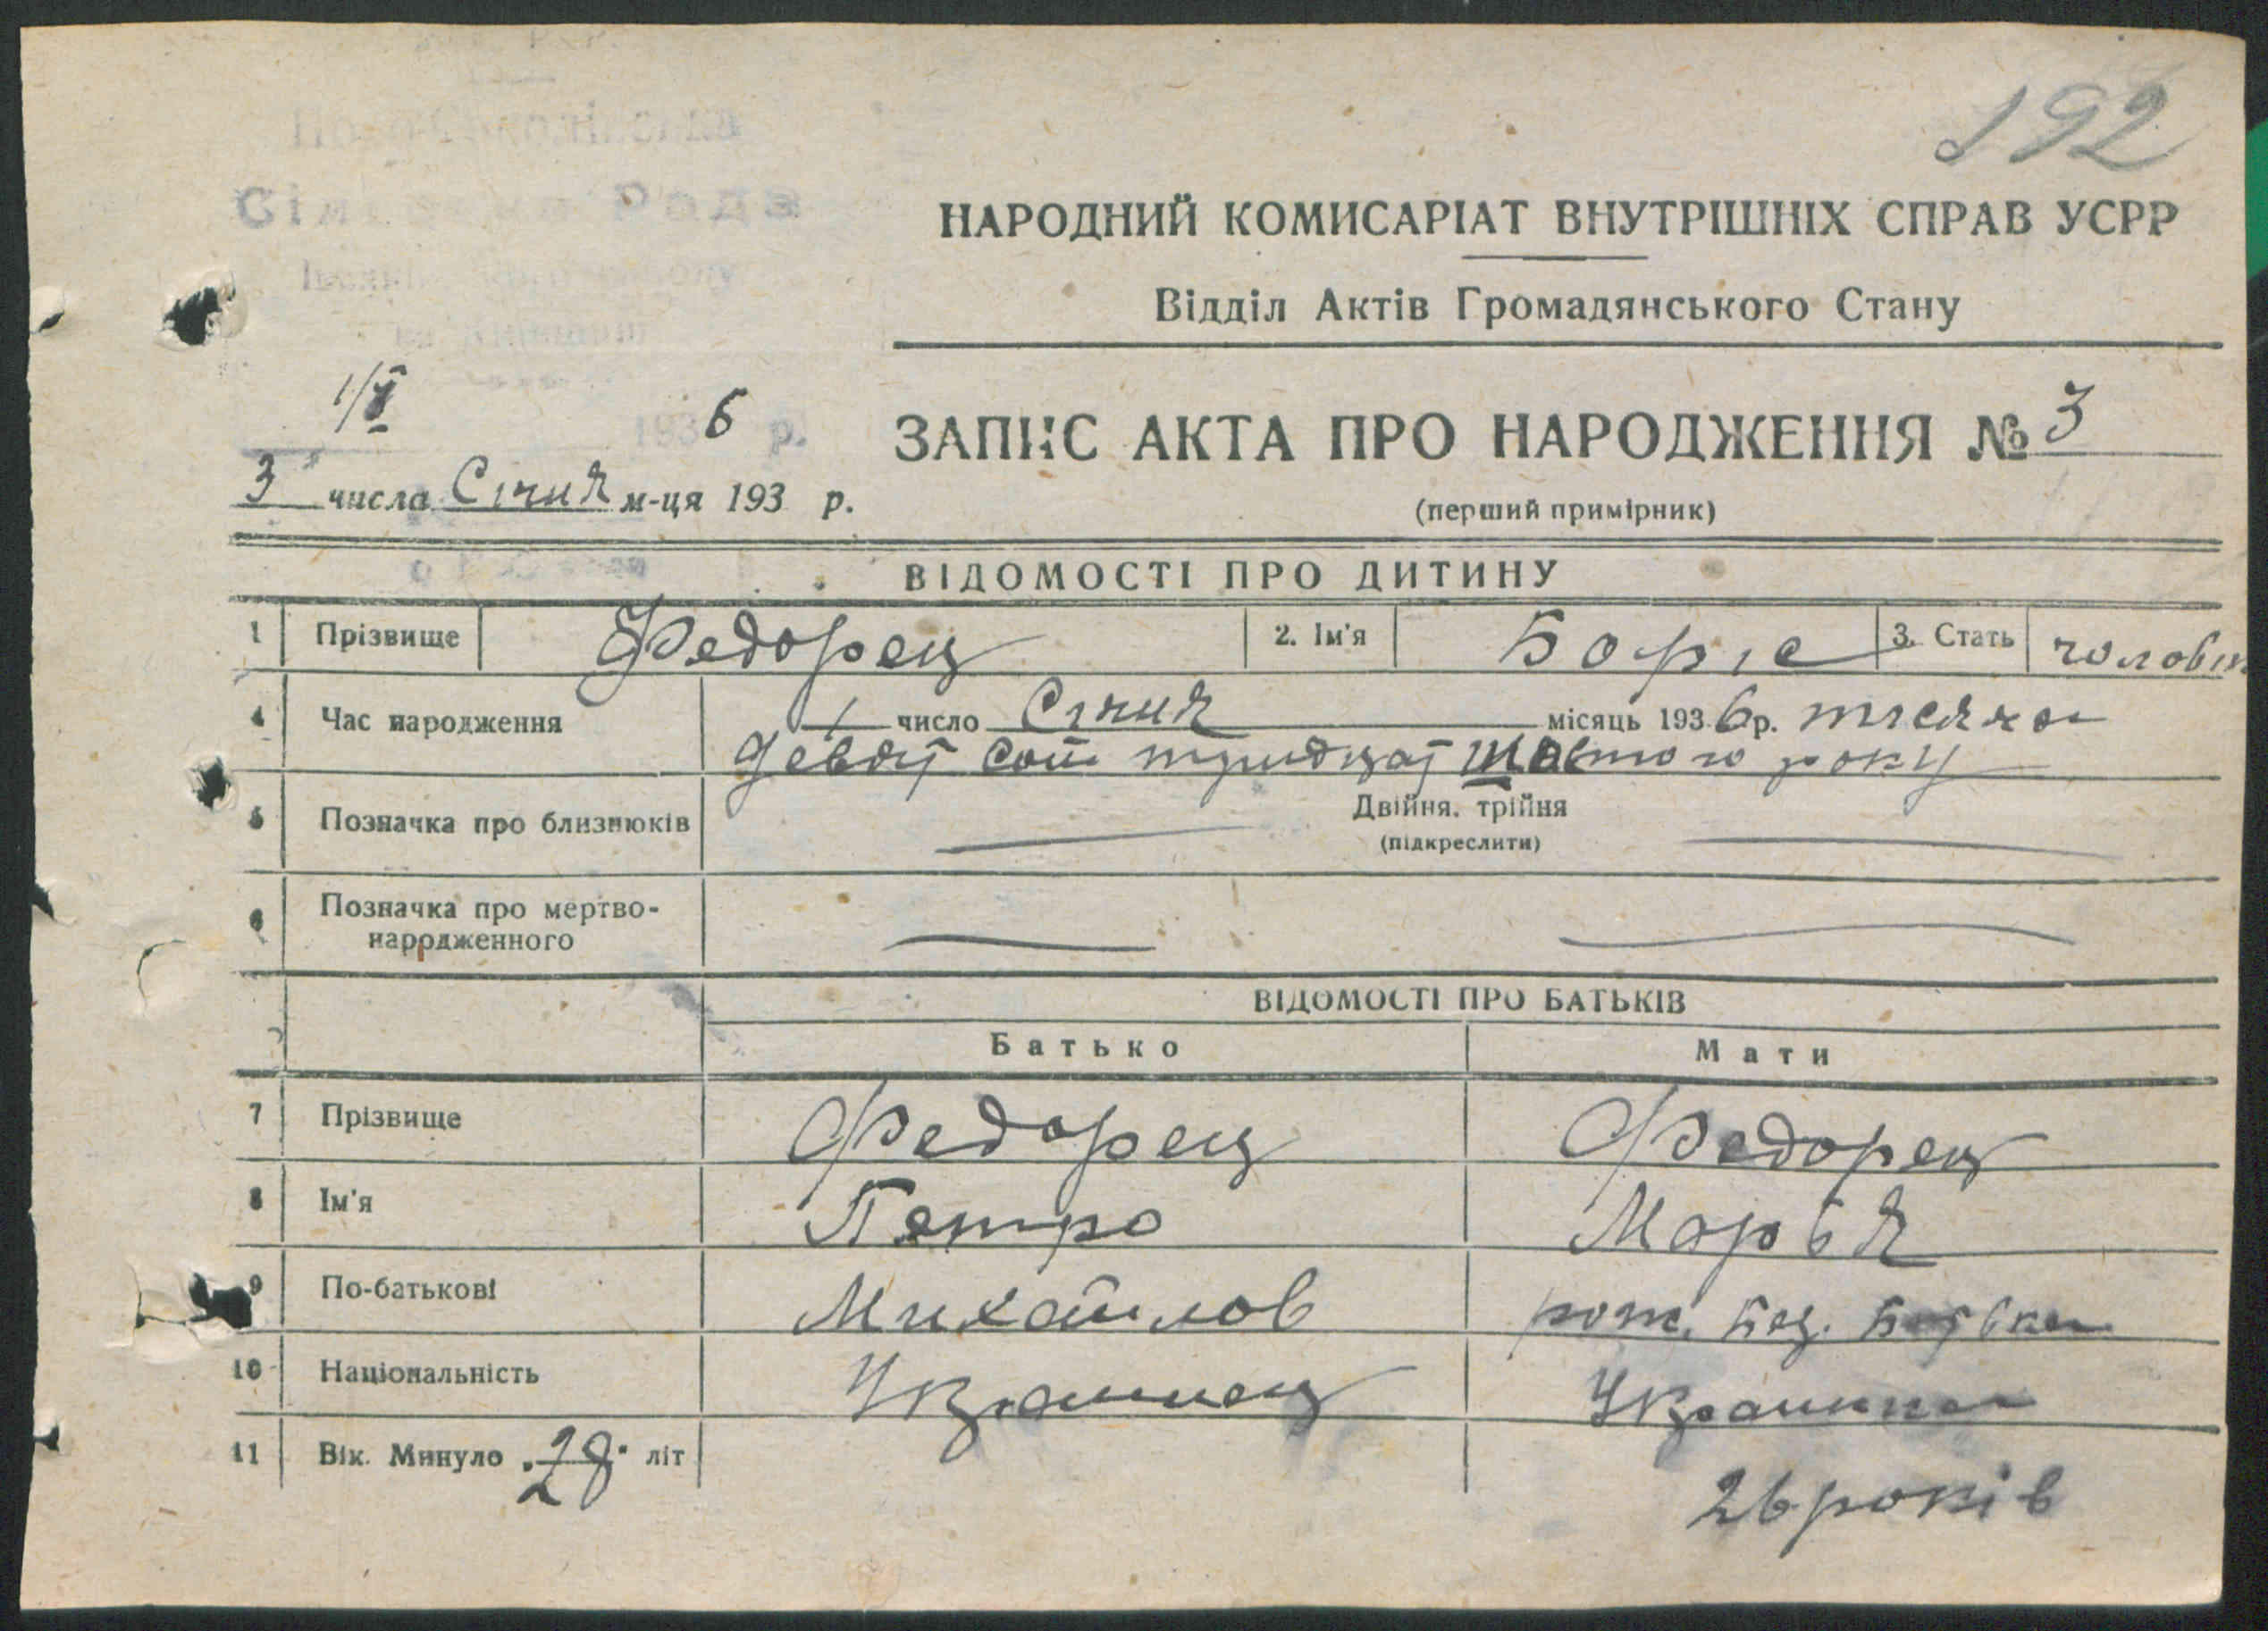 192
НАРОДНИЙ КОМИСАРІАТ ВНУТРІШНІХ СПРАВ УСРР
Відділ Актів Громадянського Стану
1936 р.
ЗАПИС АКТА ПРО НАРОДЖЕННЯ № 3
3 числа Січня м-ця 193 р.
(перший примірник)
ВІДОМОСТІ ПРО ДИТИНУ
1 Прізвище Федорец 2. Ім'я Боріс 3. Стать чоловік
4 Час народження 1 число Січня місяць 1936 р. тисяча
девят сот тридцат шостого року
5 Позначка про близнюків Двійня, трійня
(підкреслити)
6 Позначка про мертво-
народженного
ВІДОМОСТІ ПРО БАТЬКІВ
Батько Мати
7 Прізвище Федорец Федорец
8 Ім'я Петро Марья
9 По-батькові Михайлов
10 Національність Украинец Украинка
11 Вік. Минуло 28 літ
26 років